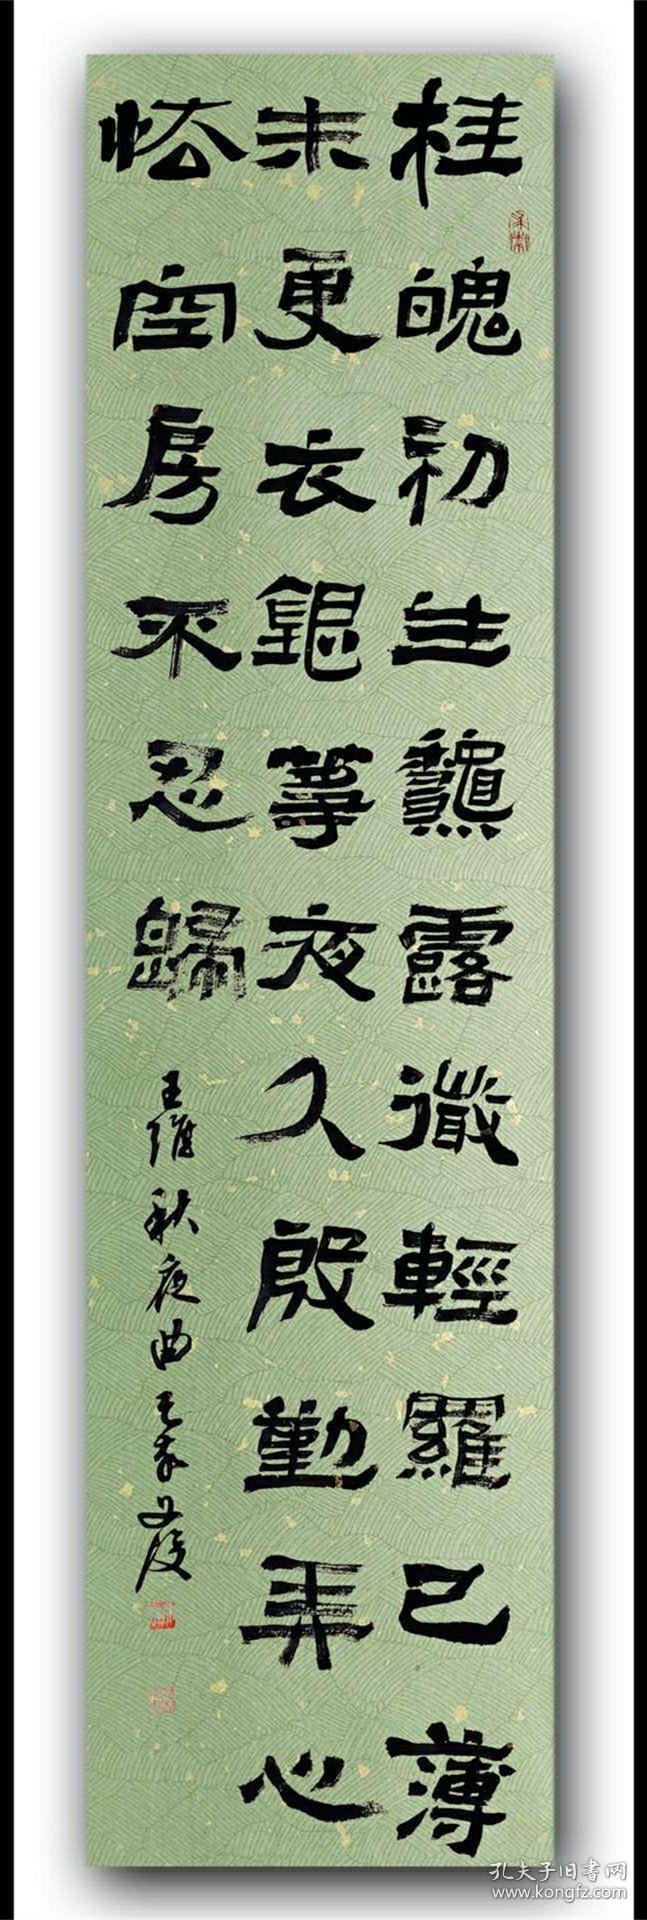 桂魄初生龝露微輕羅已薄
未更衣銀箏夜久殷勤弄心
怯空房不忍歸
王維秋夜曲
孔夫子旧书网
www.kongfz.com